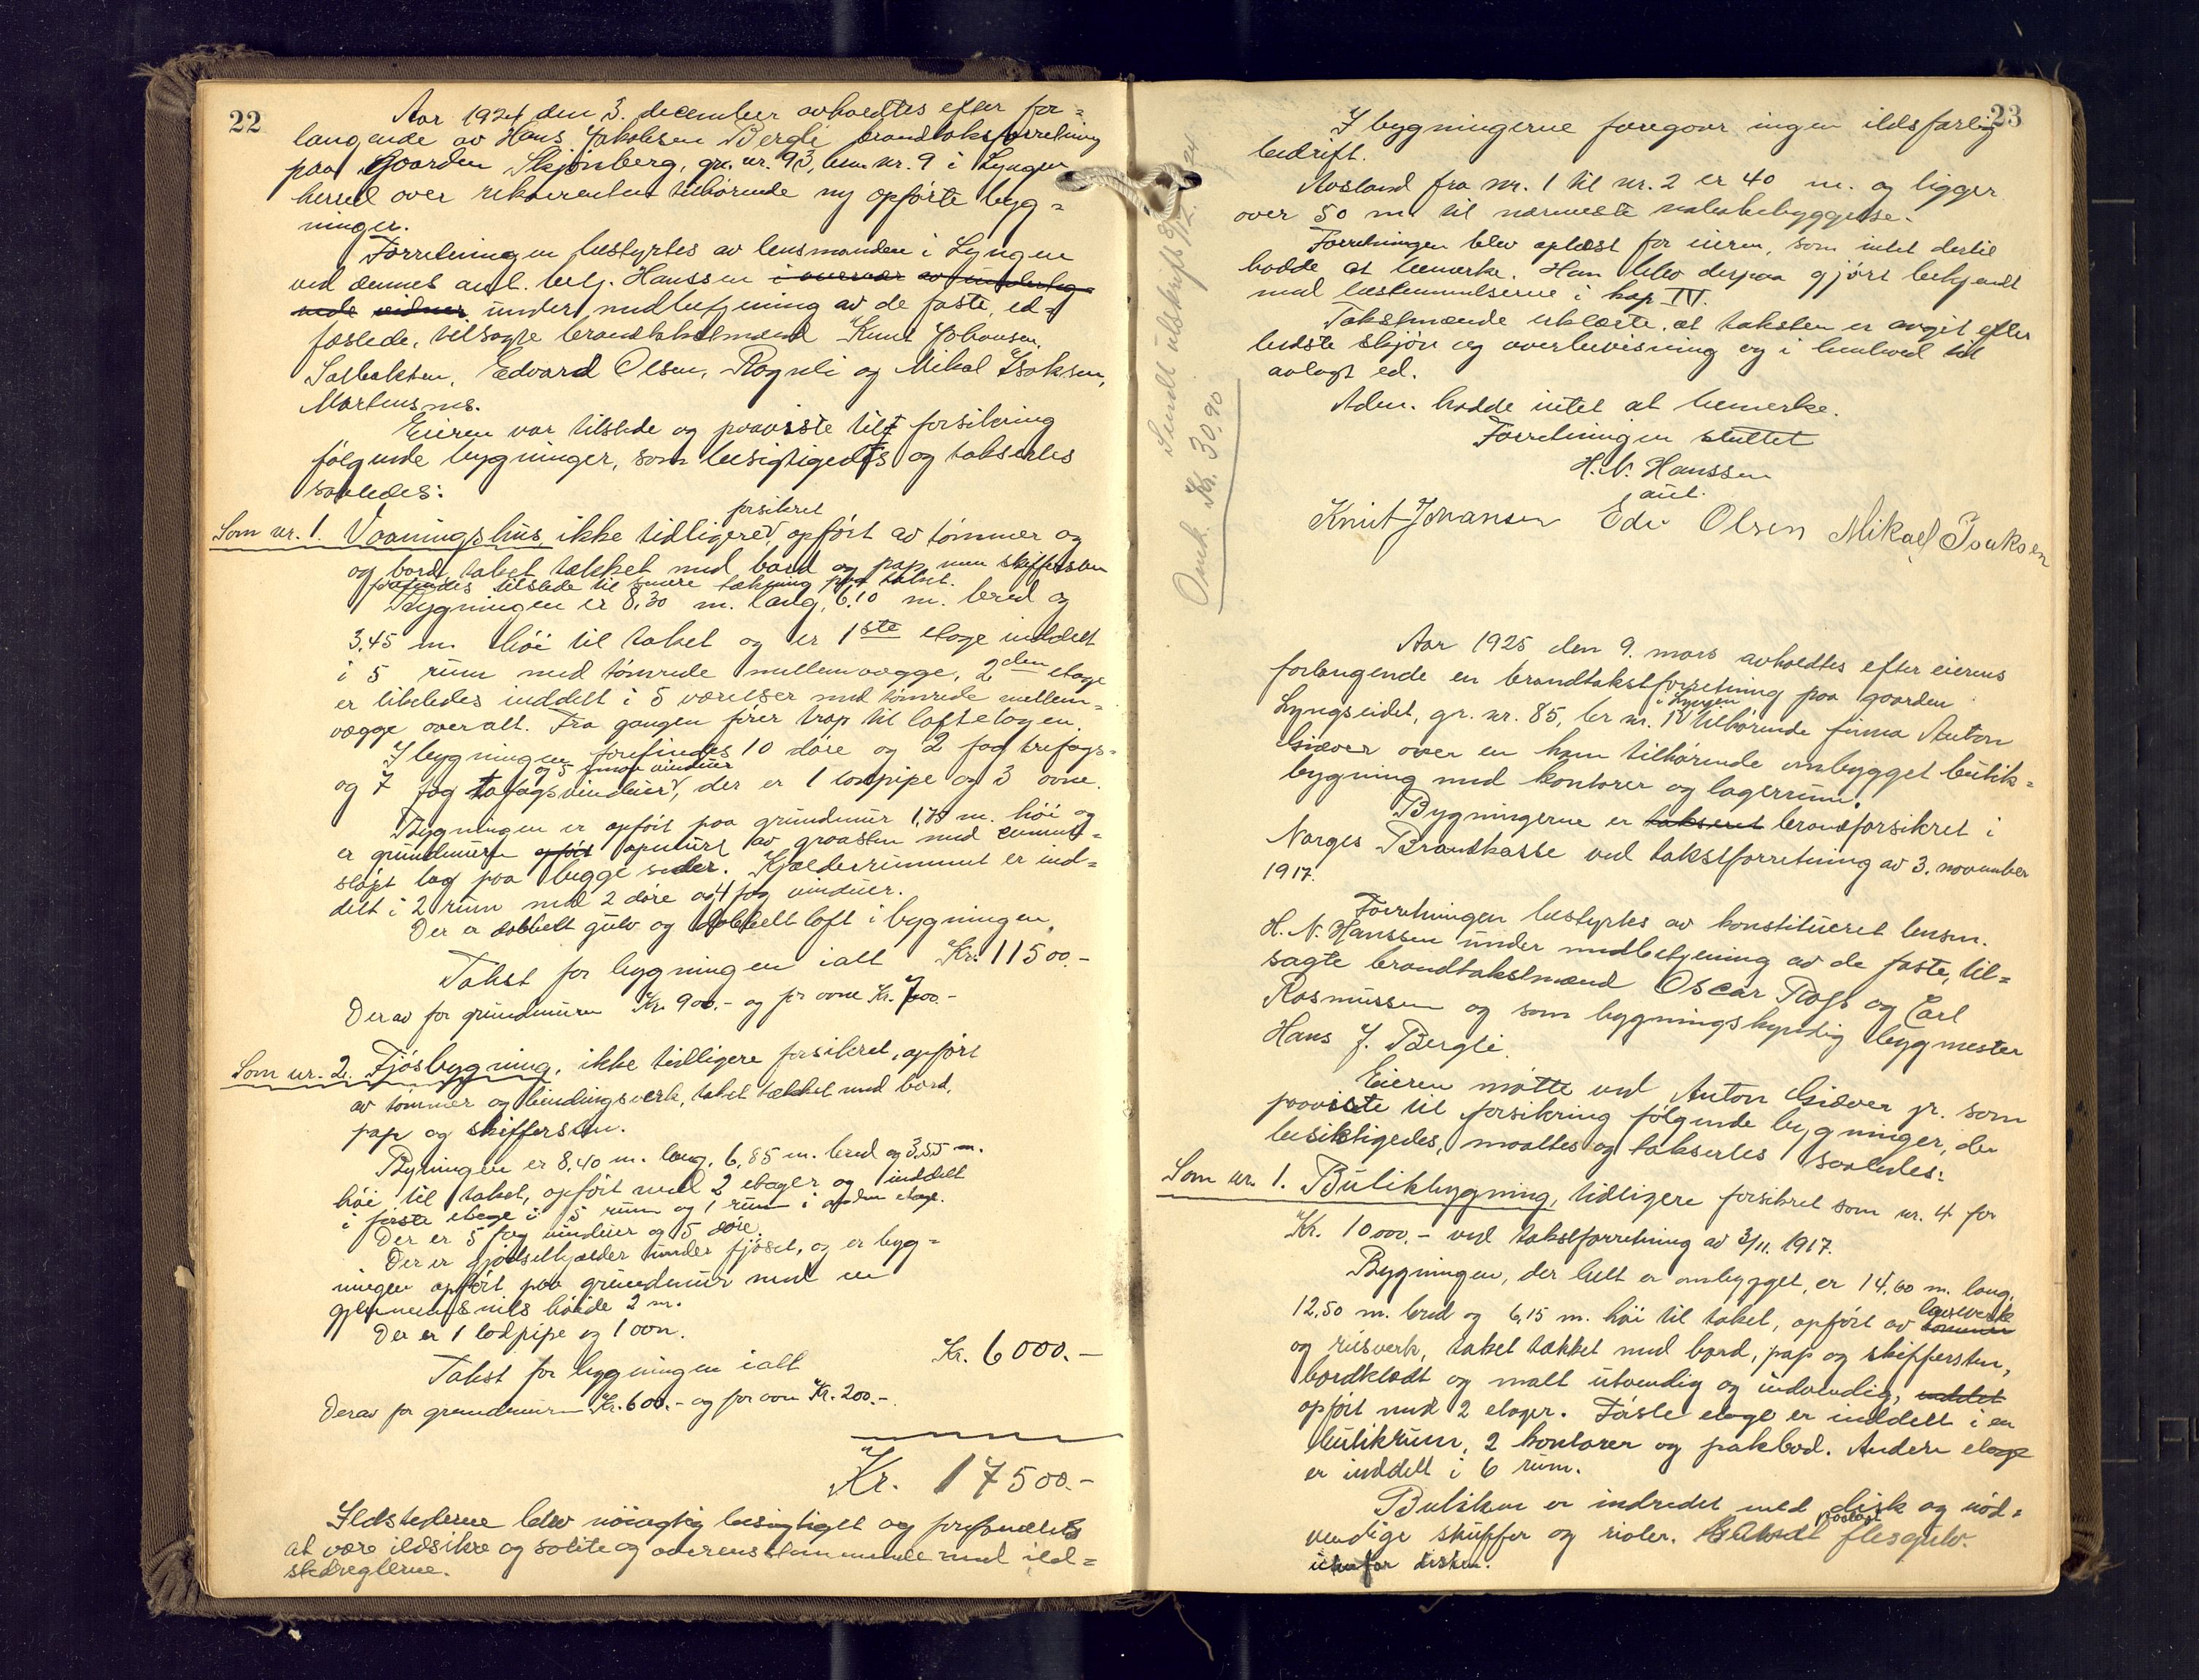 22
Aar 1924 den 3. december avholdtes efter for=
langende av Hans Jakobsen Bergli brandtakstforretning
paa Gaarden Skjönberg, gr. nr. 93, brn. nr. 9 i Lyngen
herred over rekvirenten tilhörende ny opförte byg=
ninger.
Forretningen bestyrtes av lensmanden i Lyngen
ved dennes aut. Hanssen i overvær av underteg=
nede vidner under medbetjening av de faste, ed=
fæstede, tilsagte brandtakstmænd Knut Johansen,
Solbakken, Edvard Olsen, Rognli og Mikal Isaksen,
Martensnes.
Eieren var tilstede og paaviste til forsikring
følgende bygninger, som besigtigedes og takseres
saaledes:
Som nr. 1. Vaaningshus, ikke tidligere forsikret, opfört av tömmer og
og bord, taket tækket med bord og pap, men skiffersten
forefindes tilstede til senere tækning paa taket.
Bygningen er 8,30 m. lang, 6,10 m. bred og
3,45 m. höi til taket og er 1ste etage inddelt
i 5 rum med tömrede mellemvægge, 2den etage
er likeledes inddelt i 5 værelser med tömrede mellem=
vægge overalt. Fra gangen förer trap til loftetagen.
I bygningen forefindes 10 döre og 2 fag trefags=
og 7 fag tofagsvinduer og 5 smaa vinduer, der er 1 lodpipe og 3 ovne.
Bygningen er opfört paa grundmur 1,75 m. höi og
er grundmuren opfört opmuret av graasten med cement=
slöpt lag paa begge sider. Kjælderrummet er ind=
delt i 2 rum med 2 döre og 4 fag vinduer.
Der er dobbelt gulv og dobbelt loft i bygningen.
Takst for bygningen ialt Kr. 11500.-
Derav for grundmuren Kr. 900.- og for ovne Kr. 700.-
Som nr. 2. Fjösbygning, ikke tidligere forsikret, opfört
av tömmer og bindingsverk, taket tækket med bord,
pap og skiffersten.
Bygningen er 8,40 m. lang, 6,85 m. bred og 3,55 m.
höi til taket, opfört med 2 etager og inddelt
i förste etage i 5 rum og 1 rum i anden etage.
Der er 5 fag vinduer og 5 döre.
Der er gjödselkjælder under fjöset, og er byg=
ningen opfört paa grundmur med en
gjennemsnits höide 2 m.
Der er 1 lodpipe og 1 ovn.
Takst for bygningen ialt Kr. 6000.-
Derav for grundmuren Kr. 600.- og for ovn Kr. 200.-
Kr. 17500.-
Ildstederne blev nöiagtig besigtiget og forefandtes
at være ildsikre og solite og overensstemmende med ild=
stedreglerne.
23
I bygningerne foregaar ingen ildsfarlig
bedrift.
Avstand fra nr. 1 til nr. 2 er 40 m. og ligger
over 50 m. til nærmeste nabobebyggelse.
Forretningen blev oplæst for eieren, som intet dertil
hadde at bemerke. Han blev derpaa gjört bekjendt
med bestemmelserne i kap IV.
Takstmændene erklærte, at taksten er avgit efter
bedste skjön og overbevisning og i henhold til
avlagt ed.
Adm. hadde intet at bemerke.
Forretningen sluttet
H. N. Hanssen
aut.
Knut Johansen Edv Olsen Mikael Isaksen
Sendt utskrift 8/12. 24
Omk. Kr. 30,90
Aar 1925 den 9. mars avholdtes efter eierens
forlangende en brandtakstforretning paa gaarden
Lyngseidet, gr. nr. 85, br nr. 1 i Lyngen tilhörende firma Anton
Giæver over en ham tilhörende ombygget butik=
bygning med kontorer og lagerrum.
Bygningerne er takseret brandforsikret i
Norges Brandkasse ved takstforretning av 3. november
1917.
Forretningen bestyrtes av konstitueret lensm.
H. N. Hanssen under medbetjening av de faste, til=
sagte brandtakstmænd Oscar Rogb og Carl
Rasmussen og som bygningskyndig bygmester
Hans J. Bergli.
Eieren mötte ved Anton Giæver jr. som
paaviste til forsikring følgende bygninger, der
besiktigedes, maaltes og takseres saaledes:
Som nr. 1. Butikbygning, tidligere forsikret som nr. 4 for
Kr. 10000.- ved takstforretning av 3/11. 1917.
Bygningen, der helt er ombygget, er 14,60 m. lang,
12,50 m. bred og 6,15 m. höi til taket, opfört av tömmer laftverk
og reisverk, taket tækket med bord, pap og skiffersten,
bordklædt og malt utvendig og indvendig, inddelt
opfört med 2 etager. Förste etage er inddelt i en
butikrum, 2 kontorer og pakbod. Anden etage
er inddelt i 6 rum.
Butiken er indredet med disk og nöd=
vendige skuffer og rioler. flisgulv.
utenfor disken.